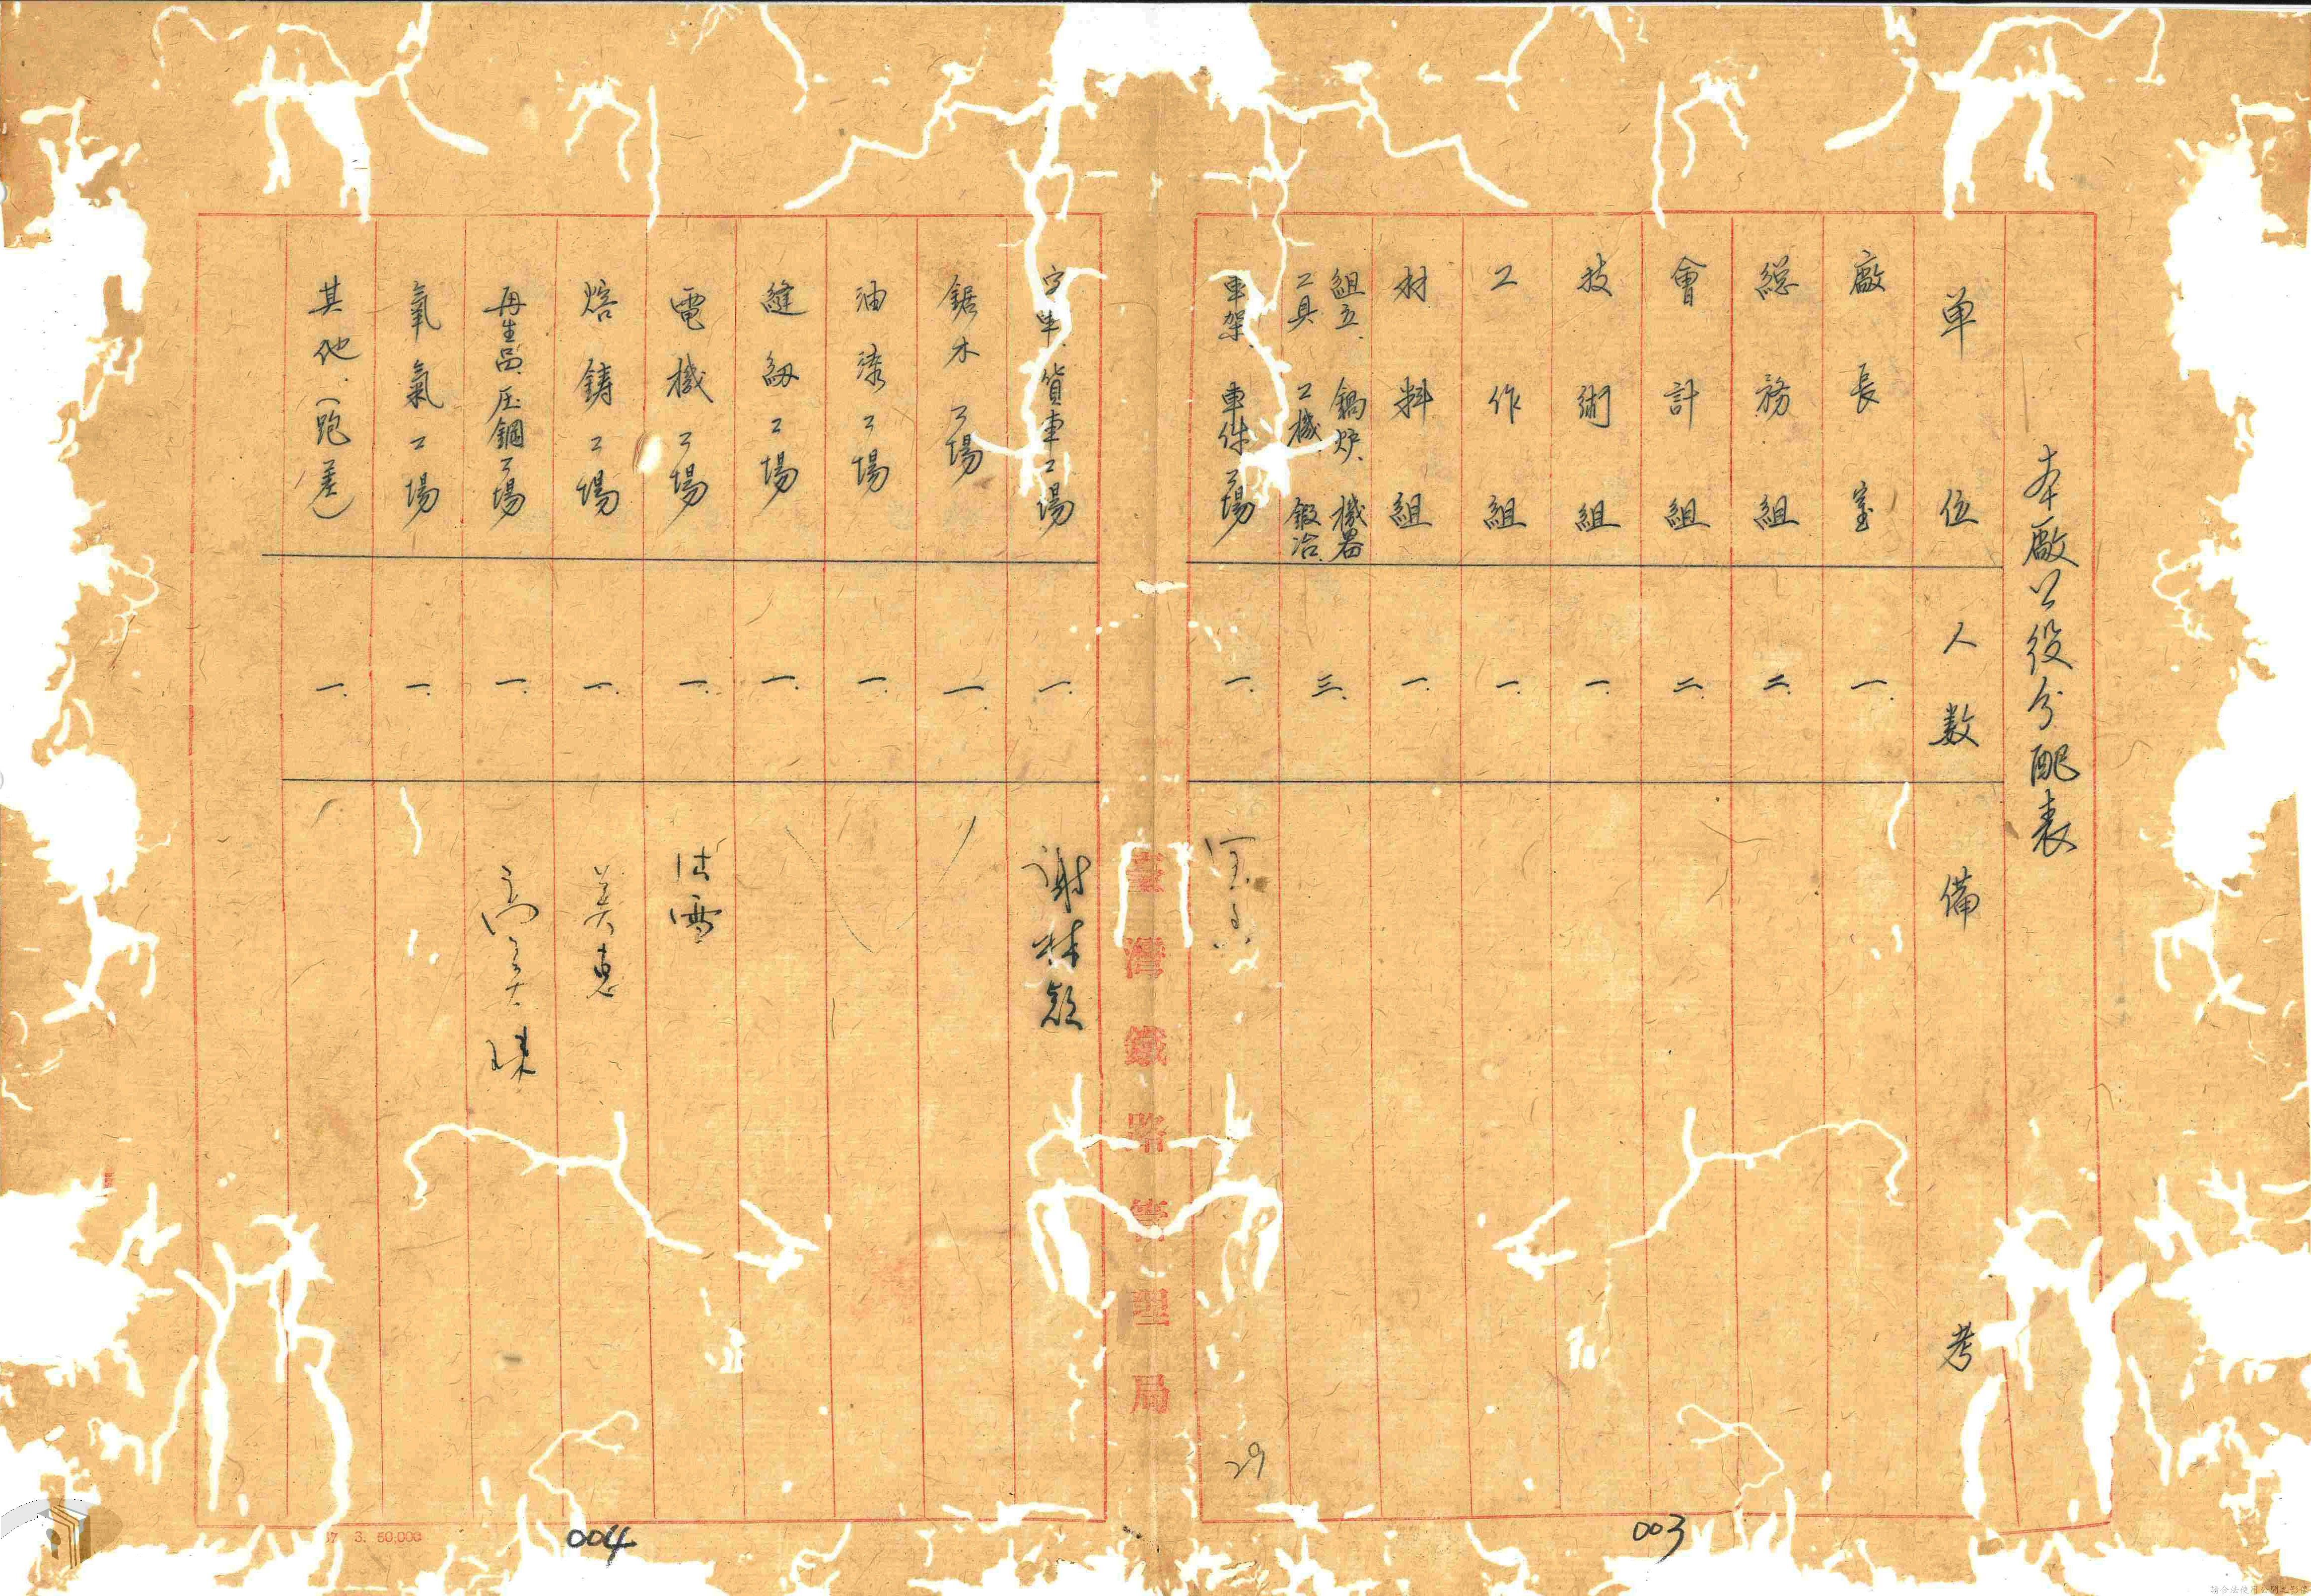 本廠公役分配表
单位 人数 備考
廠長室 一.
総務組 二.
會計組 二.
技術組 一.
工作組 一.
材料組 一.
組立. 鍋炉. 機器
工具 工機 鍛冶. 三.
車架. 車件工場 一.
29
臺灣鐵路管理局
客車. 貨車工場 一. 謝林
鋸木工場 一.
油漆工場 一.
縫紉工場 一.
電機工場 一.
熔鋳工場 一. 美惠
再生品. 压鋼工場 一. 高美珠
氧氣工場 一.
其他.(跑差) 一.
003
004
37. 3. 50,000